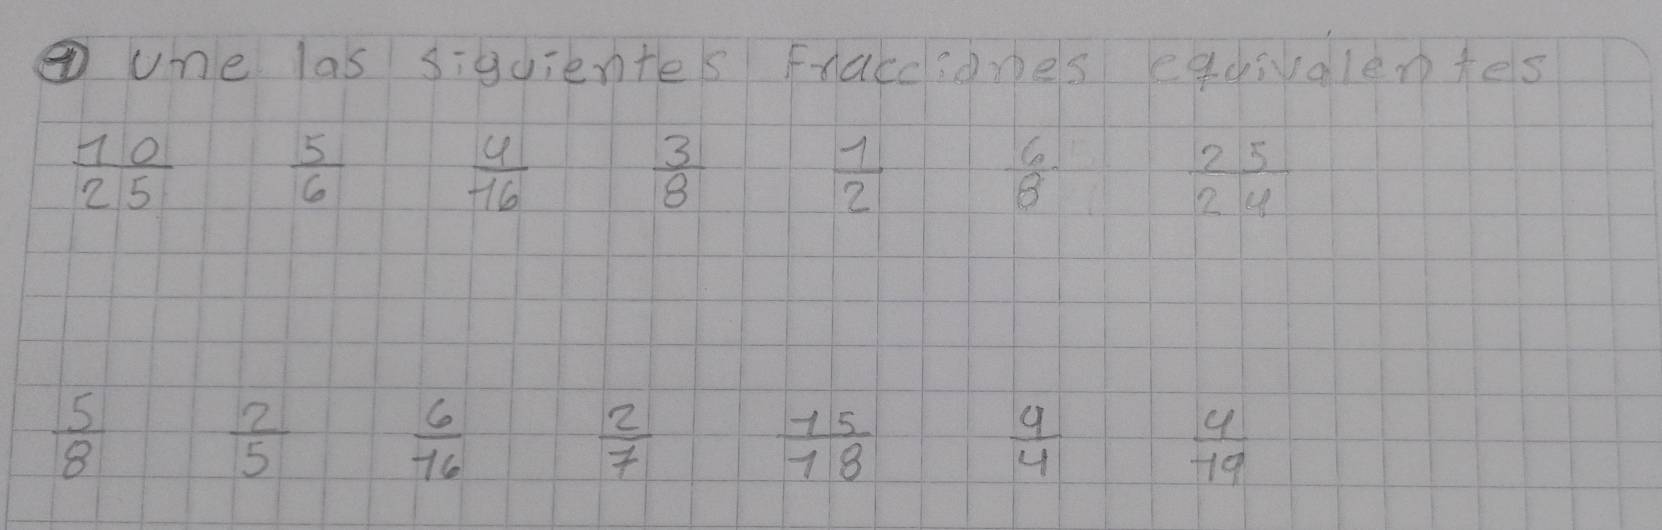 1) Une las siguientes Fracciones equivalentes
10/25 5/6 4/16 3/8 1/2 6/8 25/24
5/8 2/5 6/16 2/7 15/18 9/4 4/19